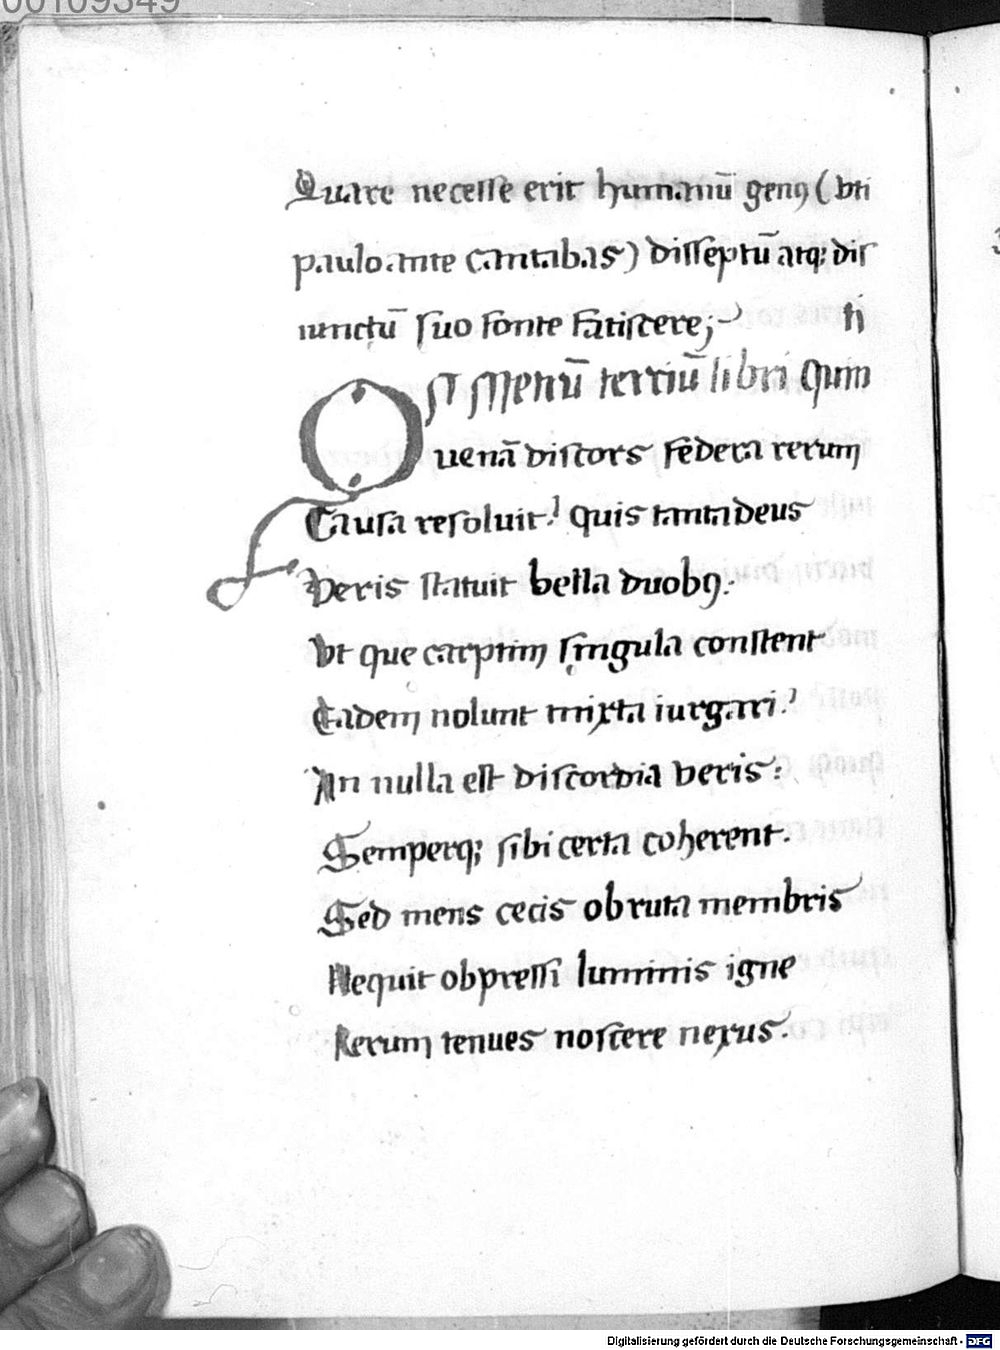 00109349
Quare necesse erit humanū genꝯ (vti
paulo ante cantabas) disseptū atq; dis
iunctū suo fonte fatiscere;
ti
Metrū tertiū libri quin
Quenā discors federa rerum
Causa resoluit? quis tanta deus
Veris statuit bella duobꝯ.
Vt que carptim singula constent
Eadem nolunt mixta iurgari?
An nulla est discordia veris:
Semperq; sibi certa coherent.
Sed mens cecis obruta membris
Nequit obpressi luminis igne
Rerum tenues noscere nexus.
Digitalisierung gefördert durch die Deutsche Forschungsgemeinschaft - DFG